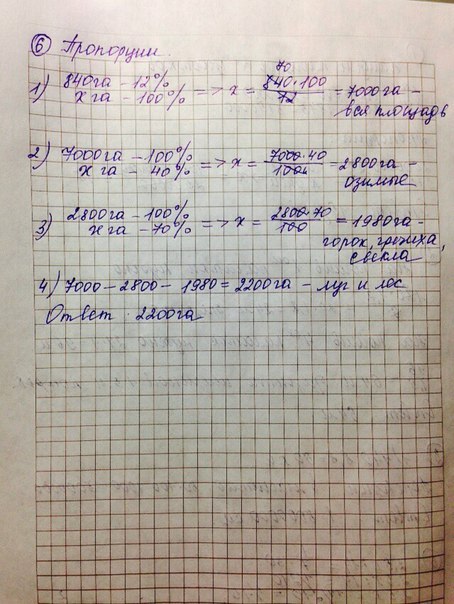 6 Пропорции.
70
1) 840га - 12% => x = 840·100 = 7000га -
x га - 100% 12 вся площадь
2) 7000га - 100% => x = 7000·40 = 2800га -
x га - 40% 100 озимые
3) 2800га - 100% => x = 2800·70 = 1980га -
x га - 70% 100 горох, гречиха,
свекла
4) 7000 - 2800 - 1980 = 2200га - луг и лес
Ответ: 2200га